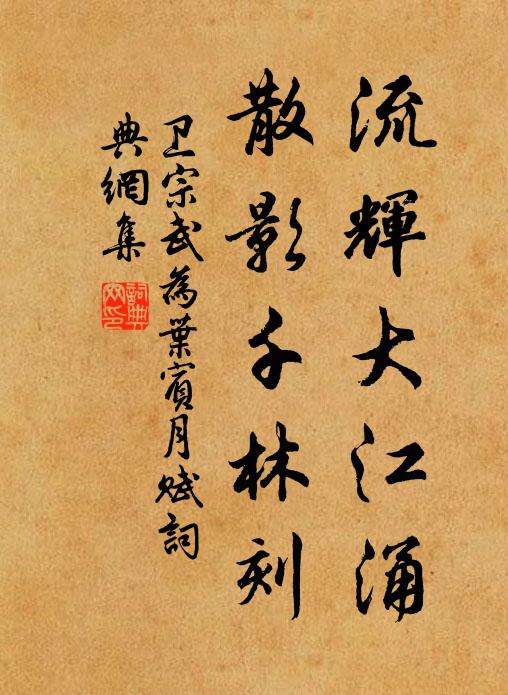 流輝大江涌
散影千林刻
卫宗武為葉賓月賦詞
典網集
詞典網印